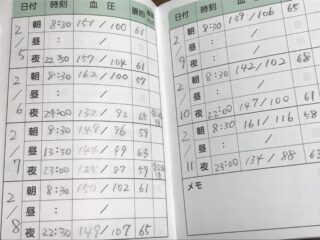 日付 時刻 血圧 脈拍
2/5 朝 8:30 151/100 61
昼 : /
夜 22:30 157/104 61
2/6 朝 8:30 162/100 57
昼 : /
夜 24:00 132/92 68
2/7 朝 8:30 148/96 59
昼 13:30 144/99 63
夜 23:00 125/87 59
2/8 朝 8:30 150/102 61
昼 : /
夜 22:30 149/107 65
日付 時刻 血圧 脈拍
2/9 朝 8:30 139/106 65
昼 : /
夜 : /
2/10 朝 8:30 142/102 68
昼 : /
夜 22:00 147/100 61
2/11 朝 8:30 161/116 58
昼 : /
夜 23:00 134/88 63
メモ